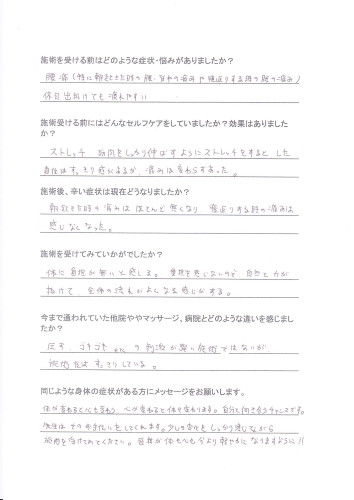 施術を受ける前はどのような症状・悩みがありましたか？
腰痛(特に朝起きた時の腰、背中の痛みや寝返りする時の腰の痛み)
休日出掛けても疲れやすい
施術受ける前にはどんなセルフケアをしていましたか？効果はありました
か？
ストレッチ 筋肉をしっかり伸ばすようにストレッチをすると した
直後はすっきり感じるが 痛みは変わらずあった。
施術後、辛い症状は現在どうなりましたか？
朝起きた時の痛みは ほとんど無くなり 寝返りする時の痛みは
感じなくなった。
施術を受けてみていかがでしたか？
体に負担が無いと感じる。 負担を感じないので 自然と力が
抜けて、全体の流れがよくなる感じがする。
今まで通われていた他院ややマッサージ、病院とどのような違いを感じまし
たか？
圧す、ゴキゴキ の刺激が強い施術ではないが
施術後はすっきりしている。
同じような身体の症状がある方にメッセージをお願いします。
体が変わると心も変わり、心が変わると体も変わります。自分と向き合うチャンスです。
先生は その手伝いをしてくれます。少しの変化をしっかり感じながら
施術を受けてみてください。 皆様が体も心も今より軽やかになりますように!!